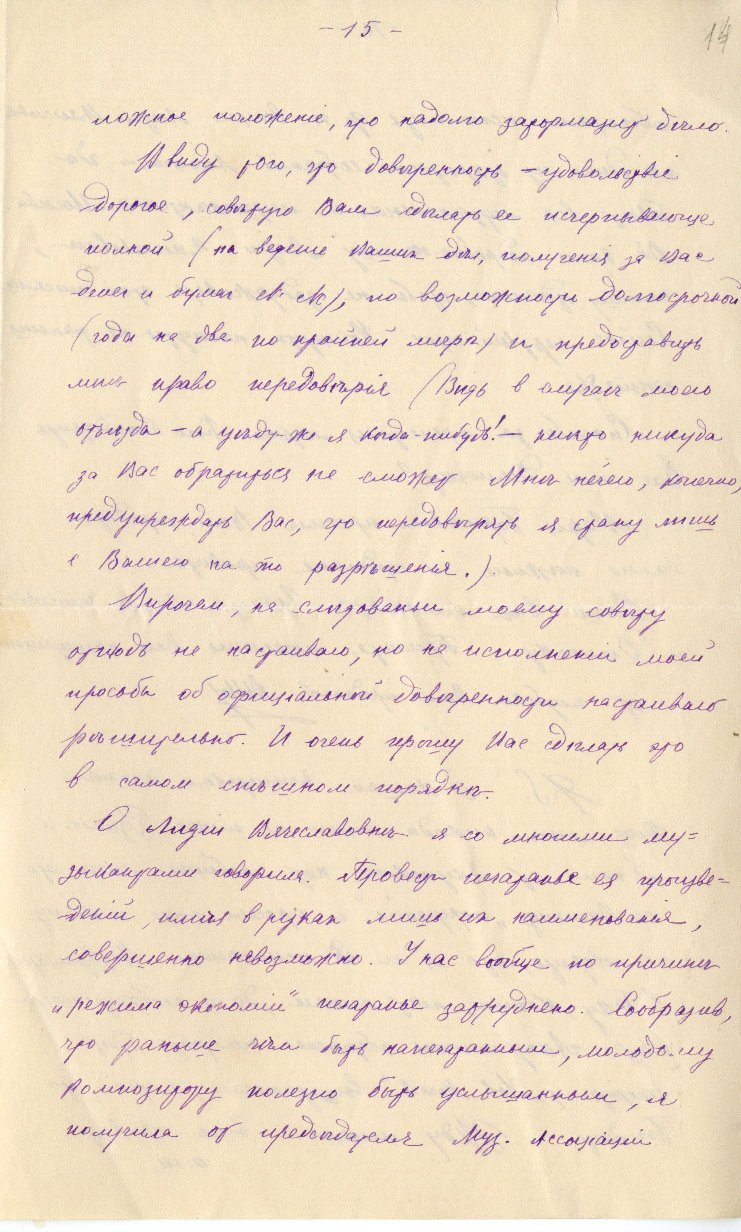 - 15 -
14
ложное положенiе, что надолго затормазит дѣло.
В виду того, что довѣренность – удовольствiе
дорогое, совѣтую Вам сдѣлать ее исчерпывающе
полной (на веденiе Ваших дѣл, полученiя за Вас
денег и бумаг etc etc), по возможности долгосрочной
(года на две по крайней мѣрѣ) и предоставить
мнѣ право передовѣрiя (Вѣдь в случаѣ моего
отъѣзда – а уѣду-же я когда-нибудь! – никто никуда
за Вас обратиться не сможет. Мнѣ нечего, конечно,
предупреждать Вас, что передовѣрять я стану лишь
с Вашего на то разрѣшенiя.)
Впрочем, на слѣдованьи моему совѣту
отнюдь не настаиваю, но на исполненiи моей
просьбы об офицiальной довѣренности настаиваю
рѣшительно. И очень прошу Вас сдѣлать это
в самом спѣшном порядкѣ.
О Лидiи Вячеславовнѣ я со многими му=
зыкантами говорила. Провести печатанье ея произве=
денiй, имѣя в руках лишь их наименованiя,
совершенно невозможно. У нас вообще по причинѣ
"режима экономiи" печатанье затруднено. Сообразив,
что раньше чѣм быть напечатанным, молодому
композитору полезно быть услышанным, я
получила от предсѣдателя Муз. Ассоцiацiи